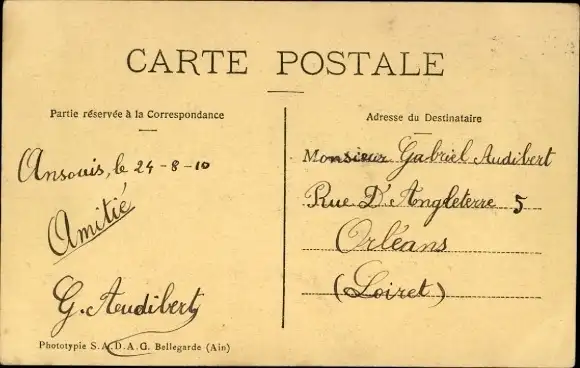 CARTE POSTALE
Partie réservée à la Correspondance
Ansouis, le 24-8-10
Amitié
G. Audibert
Phototypie S.A.D.A.G. Bellegarde (Ain)
Adresse du Destinataire
Monsieur Gabriel Audibert
Rue D'Angleterre 5
Orléans
(Loiret)